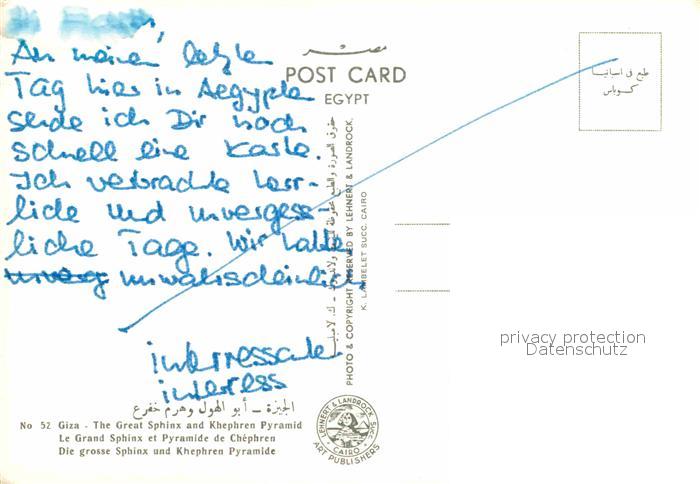 An meinen letzten
Tag hier in Aegypten
sende ich Dir noch
schnell eine Karte.
Ich verbrachte herr-
liche und unvergess-
liche Tage. Wir hatten
unverg unwahrscheinlich
interressante
interess
مصر
POST CARD
EGYPT
طبع في اسبانيا
كوباس
حقوق الصورة والطبع محفوظة
PHOTO & COPYRIGHT RESERVED BY LEHNERT & LANDROCK.
K. LAMBELET SUCC. CAIRO
privacy protection
Datenschutz
الجيزة – أبو الهول وهرم خفرع
No 52 Giza - The Great Sphinx and Khephren Pyramid
Le Grand Sphinx et Pyramide de Chéphren
Die grosse Sphinx und Khephren Pyramide
LEHNERT & LANDROCK SUCC.
CAIRO
ART PUBLISHERS